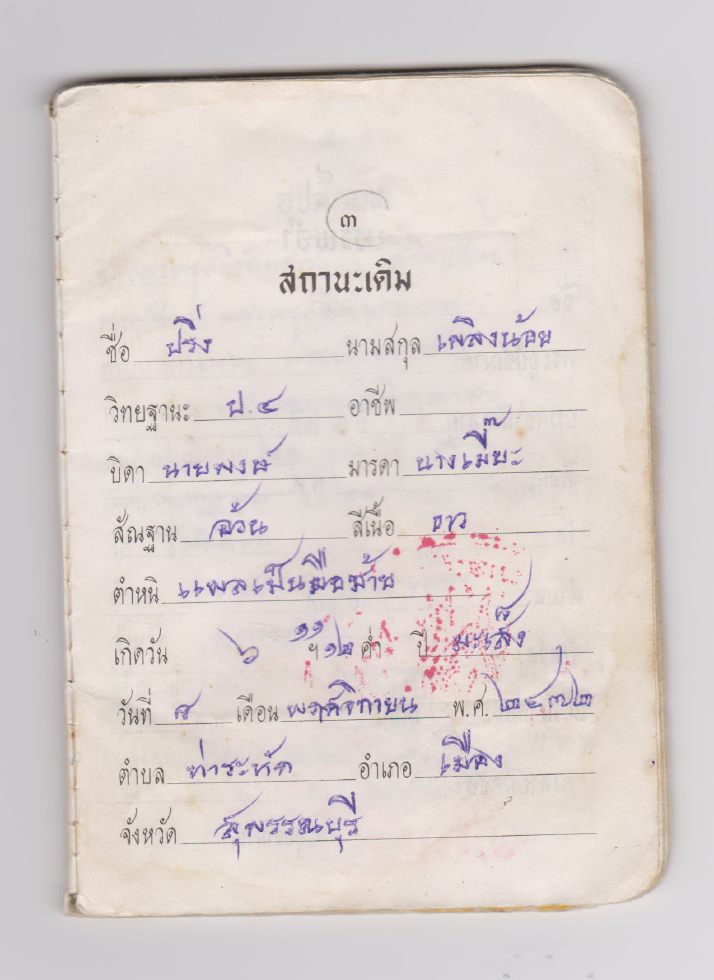 ๓
สถานะเดิม
ชื่อ ปริ่ง นามสกุล เพลิงน้อย
วิทยฐานะ ป.๔ อาชีพ
บิดา นายพงษ์ มารดา นางเมี๊ยะ
สัณฐาน อ้วน สีเนื้อ ขาว
ตำหนิ แผลเป็นมือซ้าย
เกิดวัน ๖ ๑๑ ฯ ๑๒ ค่ำ ปี มะเส็ง
วันที่ ๘ เดือน พฤศจิกายน พ.ศ. ๒๔๗๒
ตำบล ท่าระหัด อำเภอ เมือง
จังหวัด สุพรรณบุรี